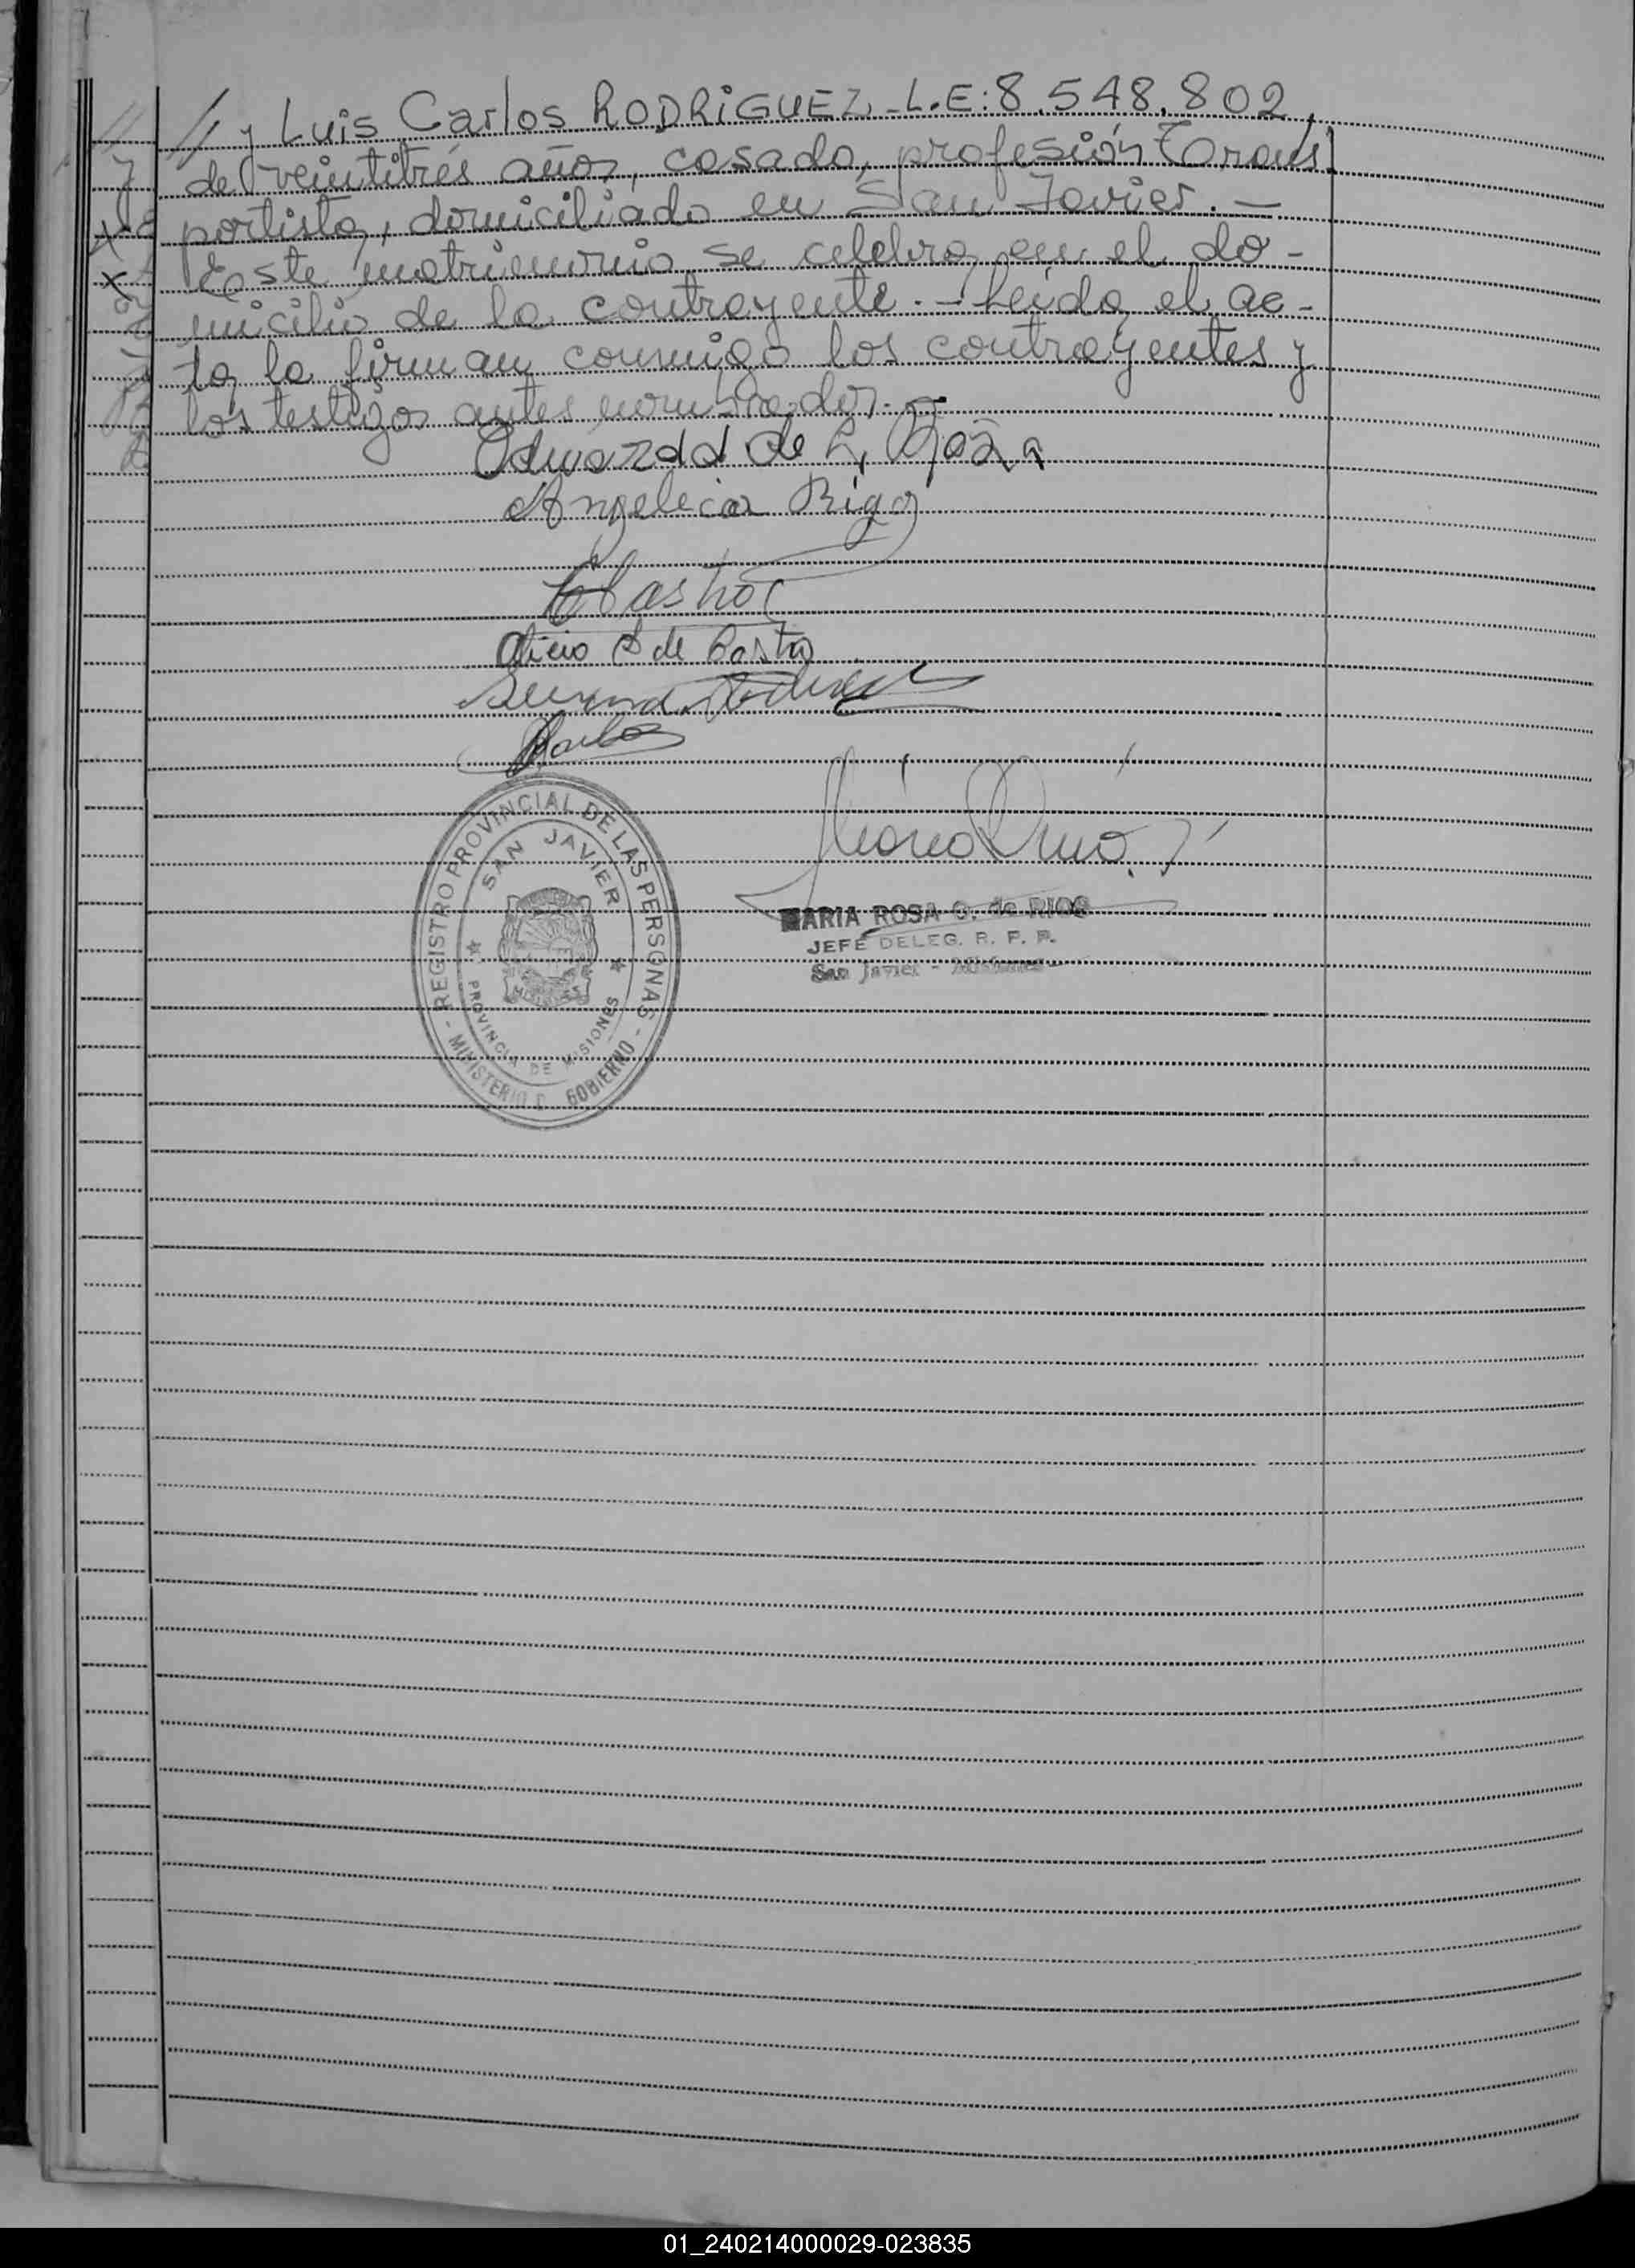 // y Luis Carlos RODRIGUEZ - L.E: 8.548.802,
de veintitrés años, casado, profesión Trans
portista, domiciliado en San Javier. -
Este matrimonio se celebra en el do-
micilio de la contrayente. - Leída el ac-
ta la firman conmigo los contrayentes y
los testigos antes nombrados. -
de
Angelica Rigo
Castro
de Castro
Carlos
REGISTRO PROVINCIAL DE LAS PERSONAS
SAN JAVIER
PROVINCIA DE MISIONES
- MINISTERIO D GOBIERNO -
MARIA ROSA O. de RIOS
JEFE DELEG. R. P. P.
San Javier - Misiones
01_240214000029-023835